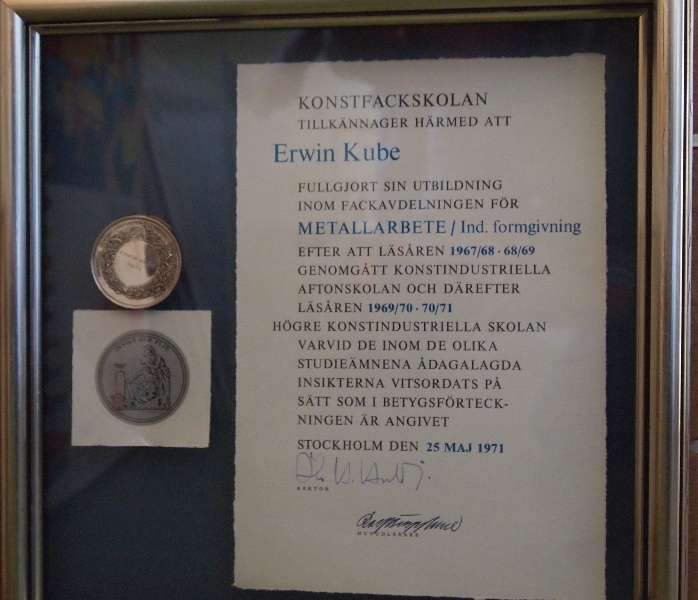 KONSTFACKSKOLAN
TILLKÄNNAGER HÄRMED ATT
Erwin Kube
FULLGJORT SIN UTBILDNING
INOM FACKAVDELNINGEN FÖR
METALLARBETE / Ind. formgivning
EFTER ATT LÄSÅREN 1967/68 - 68/69
GENOMGÅTT KONSTINDUSTRIELLA
AFTONSKOLAN OCH DÄREFTER
LÄSÅREN 1969/70 - 70/71
HÖGRE KONSTINDUSTRIELLA SKOLAN
VARVID DE INOM DE OLIKA
STUDIEÄMNENA ÅDAGALAGDA
INSIKTERNA VITSORDATS PÅ
SÄTT SOM I BETYGSFÖRTECK-
NINGEN ÄR ANGIVET
STOCKHOLM DEN 25 MAJ 1971
REKTOR
HUVUDLÄRARE